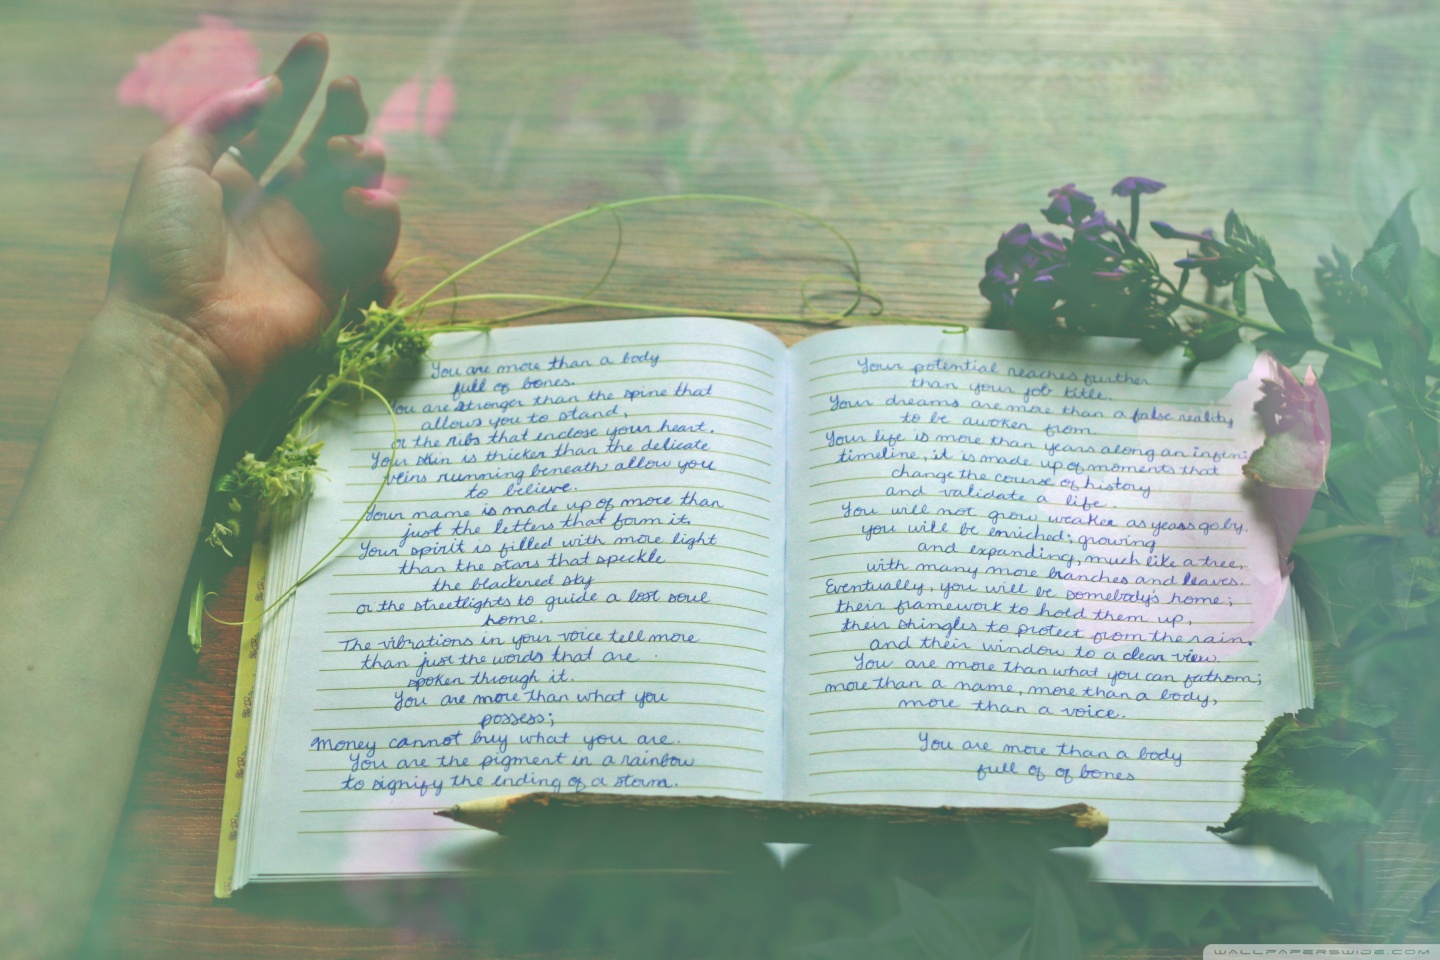 You are more than a body
full of bones.
You are stronger than the spine that
allows you to stand,
or the ribs that enclose your heart.
Your skin is thicker than the delicate
veins running beneath allow you
to believe.
Your name is made up of more than
just the letters that form it.
Your spirit is filled with more light
than the stars that speckle
the blackened sky
or the streetlights to guide a lost soul
home.
The vibrations in your voice tell more
than just the words that are
spoken through it.
You are more than what you
possess;
Money cannot buy what you are.
You are the pigment in a rainbow
to signify the ending of a storm.
Your potential reaches further
than your job title.
Your dreams are more than a false reality
to be awoken from.
Your life is more than years along an infini
timeline, it is made up of moments that
change the course of history
and validate a life.
You will not grow weaker as years go by.
you will be enriched; growing
and expanding, much like a tree,
with many more branches and leaves.
Eventually, you will be somebody's home;
their framework to hold them up,
their shingles to protect from the rain,
and their window to a clear view.
You are more than what you can fathom;
more than a name, more than a body,
more than a voice.
You are more than a body
full of of bones
WALLPAPERSWIDE.COM